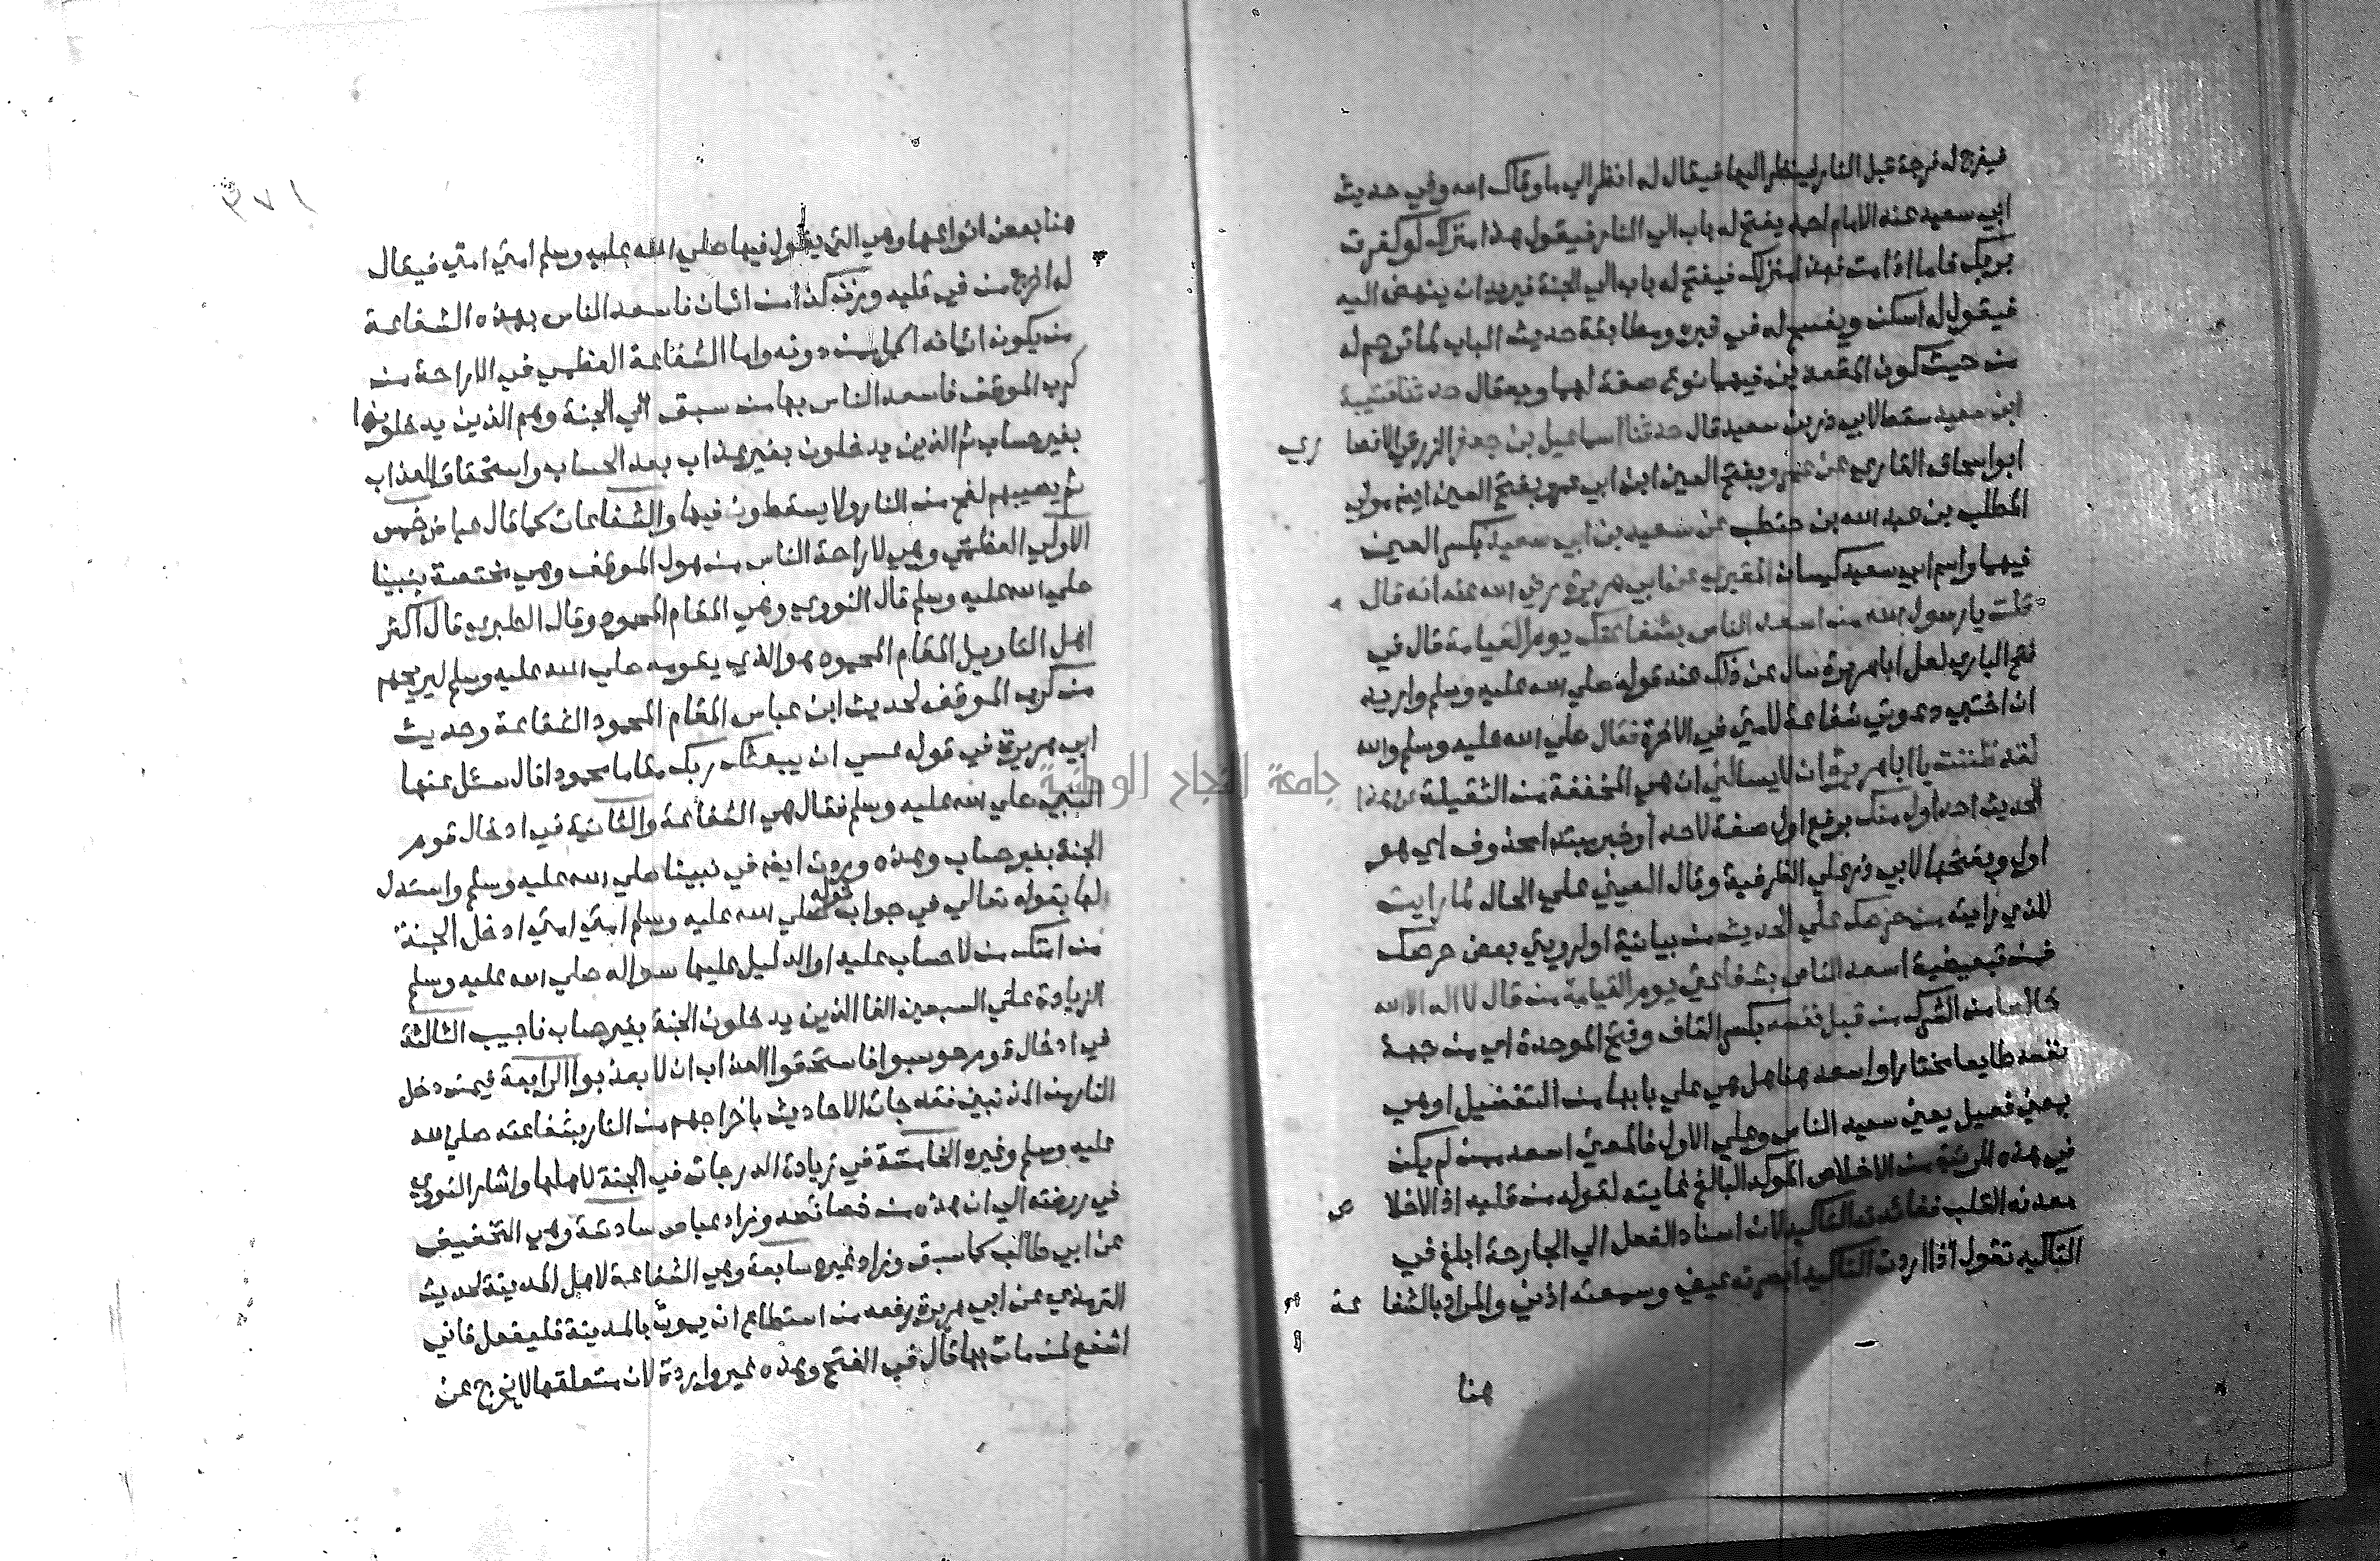 فيفرج له فرجة قبل النار فينظر اليها فيقال له انظر الي ما وقاك الله وفي حديث
ابي سعيد عند الامام احمد يفتح له باب الي النار فيقول هذا منزلك لو كفرت
بربك فاما اذا امنت فهذا منزلك فيفتح له باب الي الجنة فيريد ان ينهض اليه
فيقول له اسكن ويفسح له في قبره ومطابقة حديث الباب لما ترجم له
من حيث كون المقعدين فيهما نوع صفة لهما وبه قال حدثنا قتيبة
ابن سعيد سقط لابي ذر بن سعيد قال حدثنا اسماعيل بن جعفر الزرقي الانصا ري
ابو اسحاق القاري عن عمرو بفتح العين ابن ابي عمرو بفتح العين ايضا مولي
المطلب بن عبد الله بن حنطب عن سعيد بن ابي سعيد بكسر العين
فيهما واسم ابي سعيد كيسان المقبري عن ابي هريرة رضي الله عنه انه قال
قلت يا رسول الله من اسعد الناس بشفاعتك يوم القيامة قال في
فتح الباري لعل ابا هريرة سال عن ذلك عند قوله صلي الله عليه وسلم واريد
ان اختبي دعوتي شفاعة لامتي في الاخرة فقال صلي الله عليه وسلم والله
لقد ظننت يا ابا هريرة ان لا يسالني ان هي المخففة من الثقيلة عن هذا
الحديث احد اول منك برفع اول صفة لاحد او خبر مبتدا محذوف اي هو
اول وبفتحها لابي ذر علي الظرفية وقال العيني علي الحال لما رايت
للذي رايته من حرصك علي الحديث من بيانية او لرويتي بعض حرصك
فمن تبعيضية اسعد الناس بشفاعتي يوم القيامة من قال لا اله الا الله
خالصا من الشرك من قبل نفسه بكسر القاف وفتح الموحدة اي من جهة
نفسه طايعا مختارا واسعد هنا هل هي علي بابها من التفضيل او هي
بمعني فعيل يعني سعيد الناس وعلي الاول فالمعني اسعد ممن لم يكن
في هذه المرتبة من الاخلاص الموكد البالغ غايته لقوله من قلبه اذ الاخلا ص
معدنه القلب ففائدته التاكيد لان اسناد الفعل الي الجارحة ابلغ في
التاكيد تقول اذا اردت التاكيد ابصرته عيني وسمعته اذني والمراد بالشفا عة
هنا
١٧٩
هنا بعض انواعها وهي التي يقول فيها صلي الله عليه وسلم امتي امتي فيقال
له اخرج من في قلبه وزن كذا من ايمان فاسعد الناس بهذه الشفاعة
من يكون ايمانه اكمل ممن دونه واما الشفاعة العظمي في الاراحة من
كرب الموقف فاسعد الناس بها من سبق الي الجنة وهم الذين يدخلونها
بغير حساب ثم الذين يدخلون بغير عذاب بعد الحساب واستحقاق العذاب
ثم يصيبهم لفح من النار ولا يسقطون فيها والشفاعات كما قال عياض خمس
الاولي العظمي وهي لاراحة الناس من هول الموقف وهي مختصة بنبينا
صلي الله عليه وسلم قال النووي وهي المقام المحمود وقال الطبري قال اكثر
اهل التاويل المقام المحمود هو الذي يقومه صلي الله عليه وسلم ليريحهم
من كرب الموقف لحديث ابن عباس المقام المحمود الشفاعة وحديث
ابي هريرة في قوله عسي ان يبعثك ربك مقاما محمودا قال سئل عنها
النبي صلي الله عليه وسلم فقال هي الشفاعة والثانية في ادخال قوم
الجنة بغير حساب وهذه وردت ايضا في نبينا صلي الله عليه وسلم واستدل
لها بقوله تعالي في جواب قوله صلي الله عليه وسلم امتي امتي ادخل الجنة
من امتك من لا حساب عليه او الدليل عليها سواله صلي الله عليه وسلم
الزيادة علي السبعين الفا الذين يدخلون الجنة بغير حساب فاجيب الثالثة
في ادخال قوم حوسبوا فاستحقوا العذاب ان لا يعذبوا الرابعة فيمن دخل
النار من المذنبين فقد جات الاحاديث باخراجهم من النار بشفاعته صلي الله
عليه وسلم وغيره الخامسة في زيادة الدرجات في الجنة لاهلها واشار النووي
في روضته الي ان هذه من خصائصه وزاد عياض سادسة وهي التخفيف
عن ابي طالب كما سبق وزاد غيره سابعة وهي الشفاعة لاهل المدينة لحديث
الترمذي عن ابي هريرة رفعه من استطاع ان يموت بالمدينة فليفعل فاني
اشفع لمن مات بها قال في الفتح وهذه غير واردة لان متعلقها لا يخرج عن
جامعة النجاح الوطنية